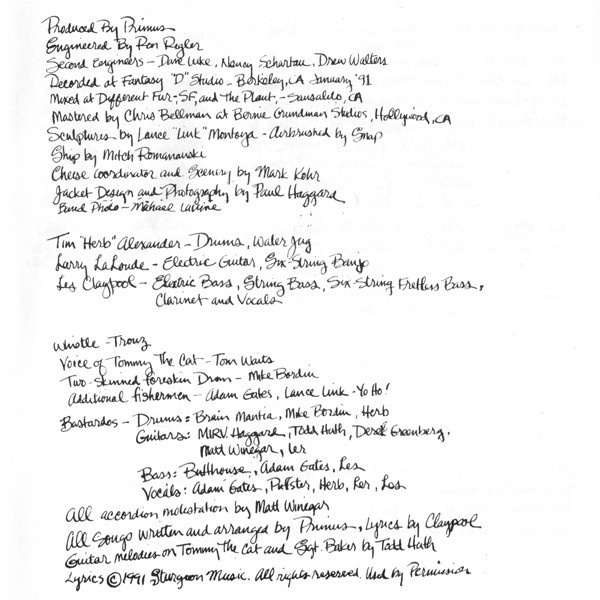 Produced By Primus
Engineered By Ron Rigler
Second Engineers - Dave Luke, Nancy Scharlau, Drew Walters
Recorded at Fantasy "D" Studio - Berkeley, CA January '91
Mixed at Different Fur - SF, and The Plant, - Sausalito, CA
Mastered by Chris Bellman at Bernie Grundman Studios, Hollywood, CA
Sculptures by Lance "Link" Montoya - Airbrushed by Snap
Ship by Mitch Romanauski
Cheese Coordinator and Scenery by Mark Kohr
Jacket Design and Photography by Paul Haggard
Band Photo - Michael Lavine
Tim "Herb" Alexander - Drums, Water Jug
Larry LaLonde - Electric Guitar, Six-String Banjo
Les Claypool - Electric Bass, String Bass, Six-String Fretless Bass,
Clarinet and Vocals
Whistle - Trouz
Voice of Tommy The Cat - Tom Waits
Two-Skinned Foreskin Drom - Mike Bordin
Additional fishermen - Adam Gates, Lance Link - Yo Ho!
Bastardos - Drums: Brain Mantia, Mike Bordin, Herb
Guitars: MIRV Haggard, Todd Huth, Derek Greenberg,
Matt Winegar, Ler
Bass: Butthouse, Adam Gates, Les
Vocals: Adam Gates, Puffster, Herb, Ler, Les
All accordion molestation by Matt Winegar
All Songs written and arranged by Primus, Lyrics by Claypool
Guitar melodies on Tommy the Cat and Sgt. Baker by Todd Huth
Lyrics ©1991 Sturgeon Music. All rights reserved. Used by Permission